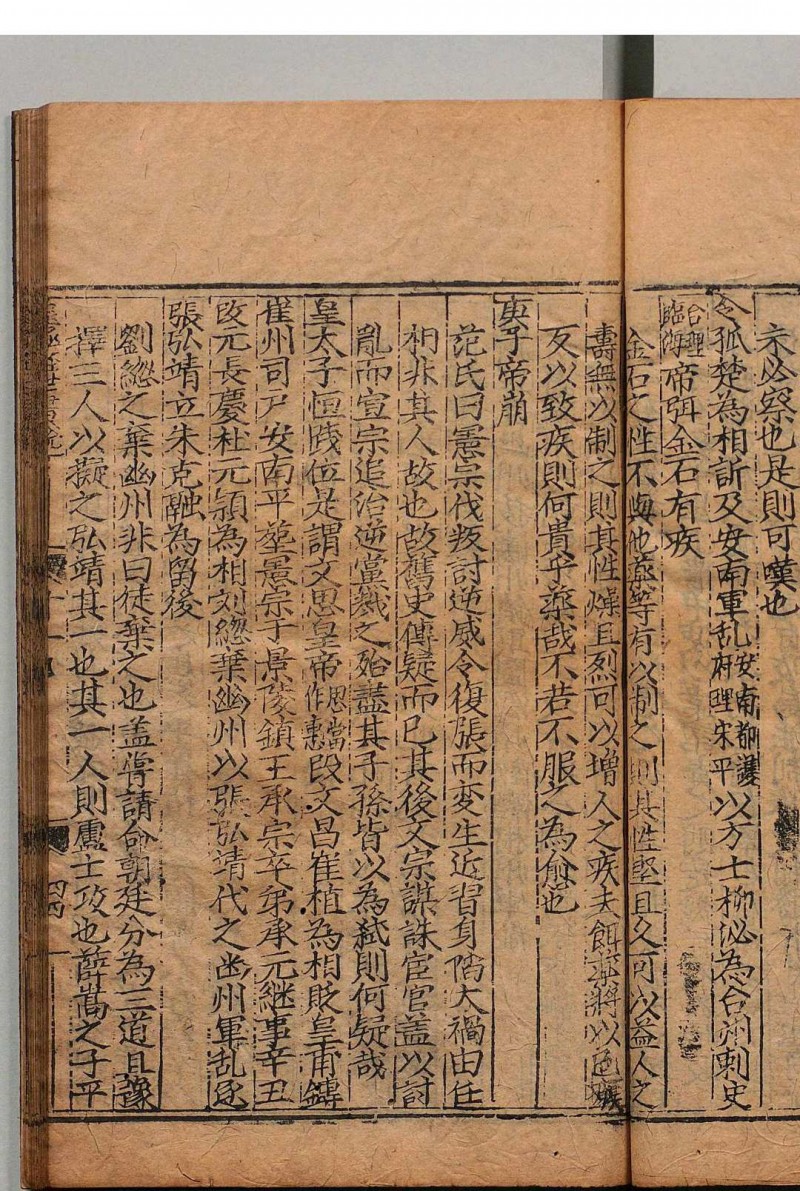 未必察也是則可嘆也
令孤楚為相訢及安南軍乱安南都護府理宋平以方士柳泌為台州刺史
台理臨海帝弭金石有疾
金石之性不與他藥等有以制之則其性堅且久可以益人之
壽無以制之則其性燥且烈可以增人之疾夫餌藥將以
反以致疾則何貴乎藥哉不若不服之為愈也
庚子帝崩
范氏曰憲宗伐叛討逆威令復張而变生近習身陷大禍由任
相非其人故也故舊史傳疑而已其後文宗謀誅宦官盖以討
亂而宣宗追治逆黨戮之殆盡其子孫皆以為弑則何疑哉
皇太子恒踐位是謂文思皇帝思當作惠段文昌崔植為相貶皇甫鏄
崖州司戶安南平葬憲宗于景陵鎮王承宗卒弟承元継事辛丑
改元長慶杜元頴為相刘緫棄幽州以張弘靖代之幽州軍乱逐
張弘靖立朱克融為留後
劉緫之棄幽州非曰徒棄之也盖甞請命朝廷分為三道且豫
擇三人以擬之弘靖其一也其一人則盧士玫也薛嵩之子平